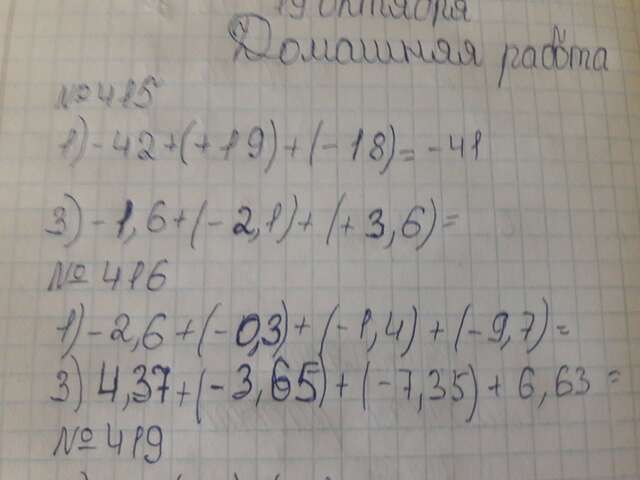 19 октября
Домашняя работа
№ 415
1) - 42 + (+19) + (-18) = -41
3) - 1,6 + (-2,1) + (+3,6) =
№ 416
1) - 2,6 + (-0,3) + (-1,4) + (-9,7) =
3) 4,37 + (-3,65) + (-7,35) + 6,63 =
№ 419